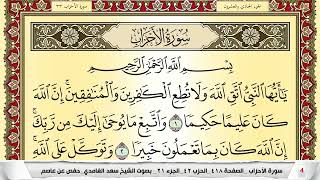 الجزء الحادي والعشرون
سورة الأحزاب ٣٣
سُورَةُ الأَحْزَابِ
بِسْمِ اللَّهِ الرَّحْمَٰنِ الرَّحِيمِ
يَا أَيُّهَا النَّبِيُّ اتَّقِ اللَّهَ وَلَا تُطِعِ الْكَافِرِينَ وَالْمُنَافِقِينَ إِنَّ اللَّهَ
كَانَ عَلِيمًا حَكِيمًا ١ وَاتَّبِعْ مَا يُوحَىٰ إِلَيْكَ مِن رَّبِّكَ
إِنَّ اللَّهَ كَانَ بِمَا تَعْمَلُونَ خَبِيرًا ٢ وَتَوَكَّلْ عَلَى اللَّهِ
4 سورة الأحزاب . الصفحة ٤١٨ . الحزب ٤٢ . الجزء ٢١ . بصوت الشيخ سعد الغامدي . حفص عن عاصم